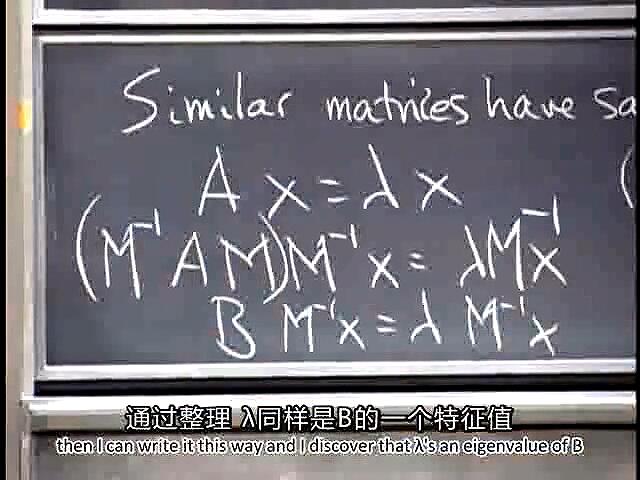 Similar matrices have sa
A x = λ x
(M⁻¹ A M) M⁻¹ x = λ M⁻¹ x
B M⁻¹x = λ M⁻¹x
通过整理 λ同样是B的一个特征值
then I can write it this way and I discover that λ's an eigenvalue of B